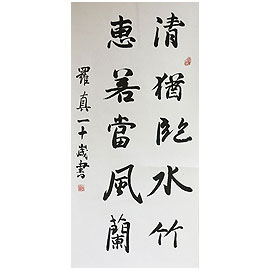 清猶臨水竹
惠若當風蘭
羅真一十歲書